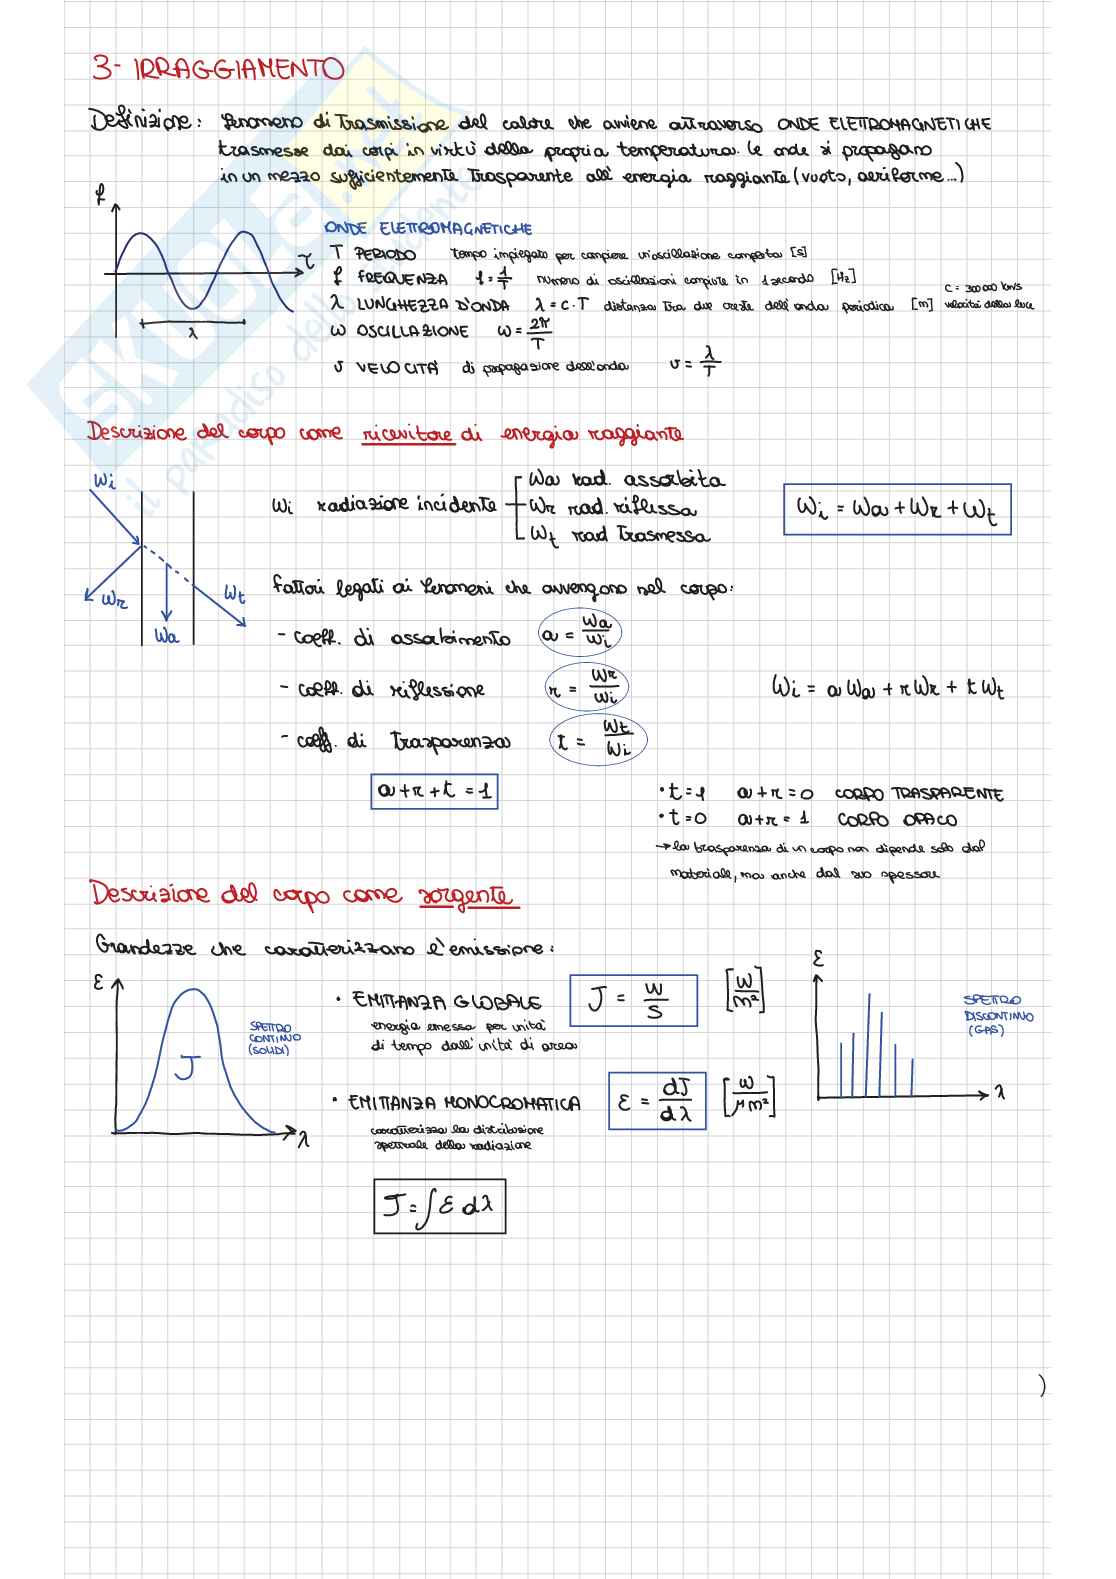 3- IRRAGGIAMENTO
Definizione: fenomeno di Trasmissione del calore che avviene attraverso ONDE ELETTROMAGNETICHE
trasmesse dai corpi in virtù della propria temperatura. Le onde si propagano
in un mezzo sufficientemente Trasparente all'energia raggiante (vuoto, aeriforme...)
f
τ
λ
ONDE ELETTROMAGNETICHE
T PERIODO tempo impiegato per compiere un'oscillazione completa [s]
f FREQUENZA f = 1/T numero di oscillazioni compiute in 1 secondo [Hz]
λ LUNGHEZZA D'ONDA λ = c · T distanza tra due creste dell'onda periodica [m]
C = 300000 km/s
velocità della luce
ω OSCILLAZIONE ω = 2π/T
v VELOCITÀ di propagazione dell'onda v = λ/T
Descrizione del corpo come ricevitore di energia raggiante
Wi
Wr
Wa
Wt
Wi radiazione incidente
Wa rad. assorbita
Wr rad. riflessa
Wt rad Trasmessa
Wi = Wa + Wr + Wt
Fattori legati ai fenomeni che avvengono nel corpo:
- coeff. di assorbimento a = Wa/Wi
- coeff. di riflessione r = Wr/Wi
Wi = a Wa + r Wr + t Wt
- coeff. di trasparenza t = Wt/Wi
a + r + t = 1
• t = 1 a + r = 0 CORPO TRASPARENTE
• t = 0 a + r = 1 CORPO OPACO
→ la trasparenza di un corpo non dipende solo dal
materiale, ma anche dal suo spessore
Descrizione del corpo come sorgente
Grandezze che caratterizzano l'emissione:
ε
SPETTRO
CONTINUO
(SOLIDI)
J
λ
• EMITTANZA GLOBALE J = W/S [W/m²]
energia emessa per unità
di tempo dall'unità di area
• EMITTANZA MONOCROMATICA ε = dJ/dλ [W/μm²]
caratterizza la distribuzione
spettrale della radiazione
J = ∫ ε dλ
ε
SPETTRO
DISCONTINUO
(GAS)
λ
)
SKUOLA.net
il paradiso dello studente